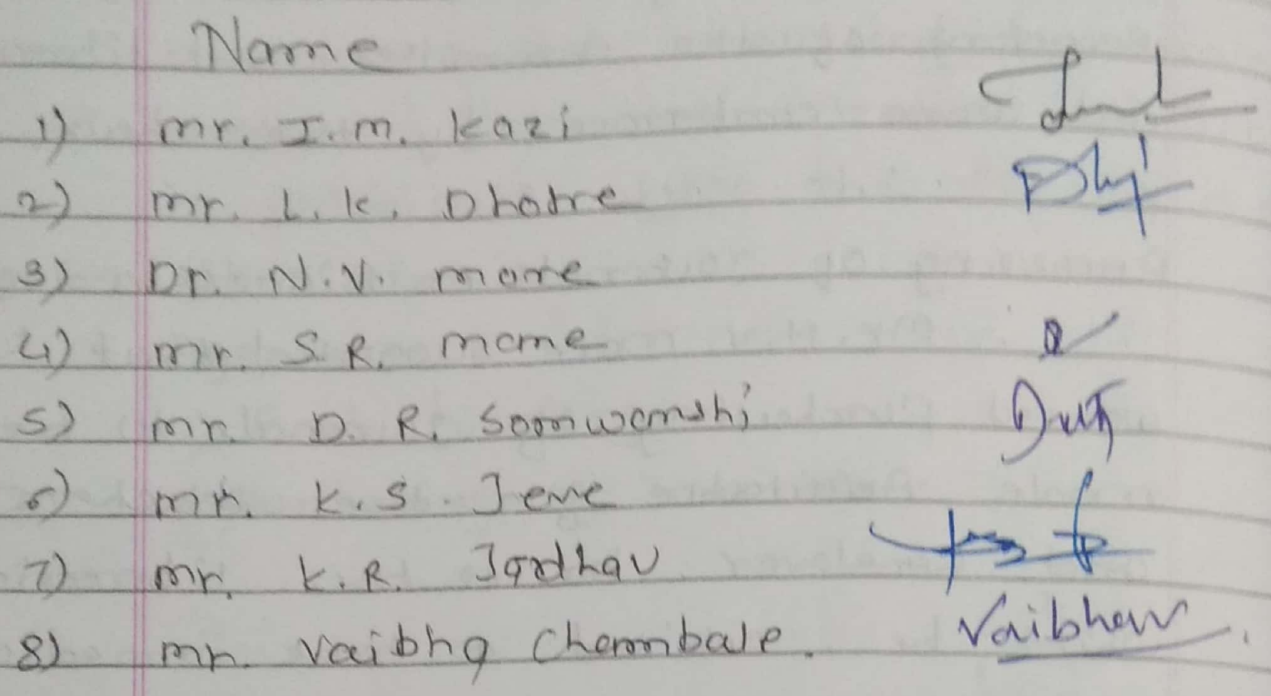 Name
1) mr. I.m. kazi
2) mr. L.k. Dhotre
3) Dr. N.V. more
4) mr. S.R. mane
5) mr. D.R. Soonwanshi
6) mr. k.s. Jeve
7) mr. k.R. Jadhav
8) mr. vaibhg Chaombale. Vaibhav.